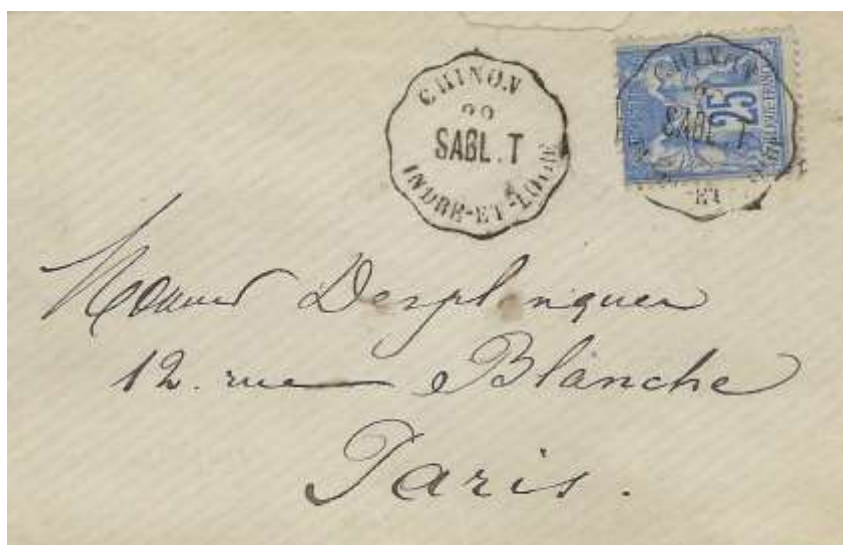 CHINON
22
SABL. T
INDRE-ET-LOIRE
CHINON
SABL T
ET
25
Desplanques
12. rue Blanche
Paris.